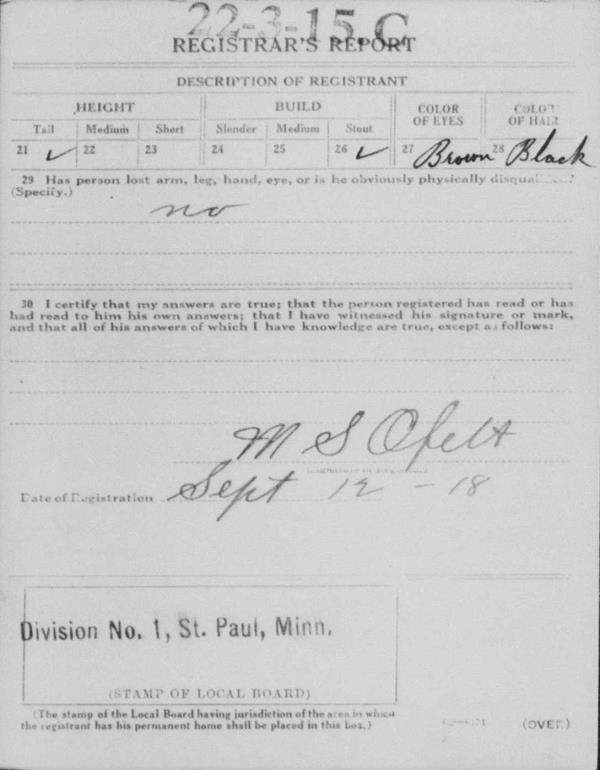 22-3-15.C
REGISTRAR'S REPORT
DESCRIPTION OF REGISTRANT
HEIGHT BUILD COLOR OF EYES COLOR OF HAIR
Tall Medium Short Slender Medium Stout
21 ✓ 22 23 24 25 26 ✓ 27 Brown 28 Black
29 Has person lost arm, leg, hand, eye, or is he obviously physically disqualified?
(Specify.)
no
30 I certify that my answers are true; that the person registered has read or has
had read to him his own answers; that I have witnessed his signature or mark,
and that all of his answers of which I have knowledge are true, except as follows:
M S Ofelt
Date of Registration Sept 12 - 18
Division No. 1, St. Paul, Minn.
(STAMP OF LOCAL BOARD)
(The stamp of the Local Board having jurisdiction of the area in which
the registrant has his permanent home shall be placed in this box.)
(OVER)